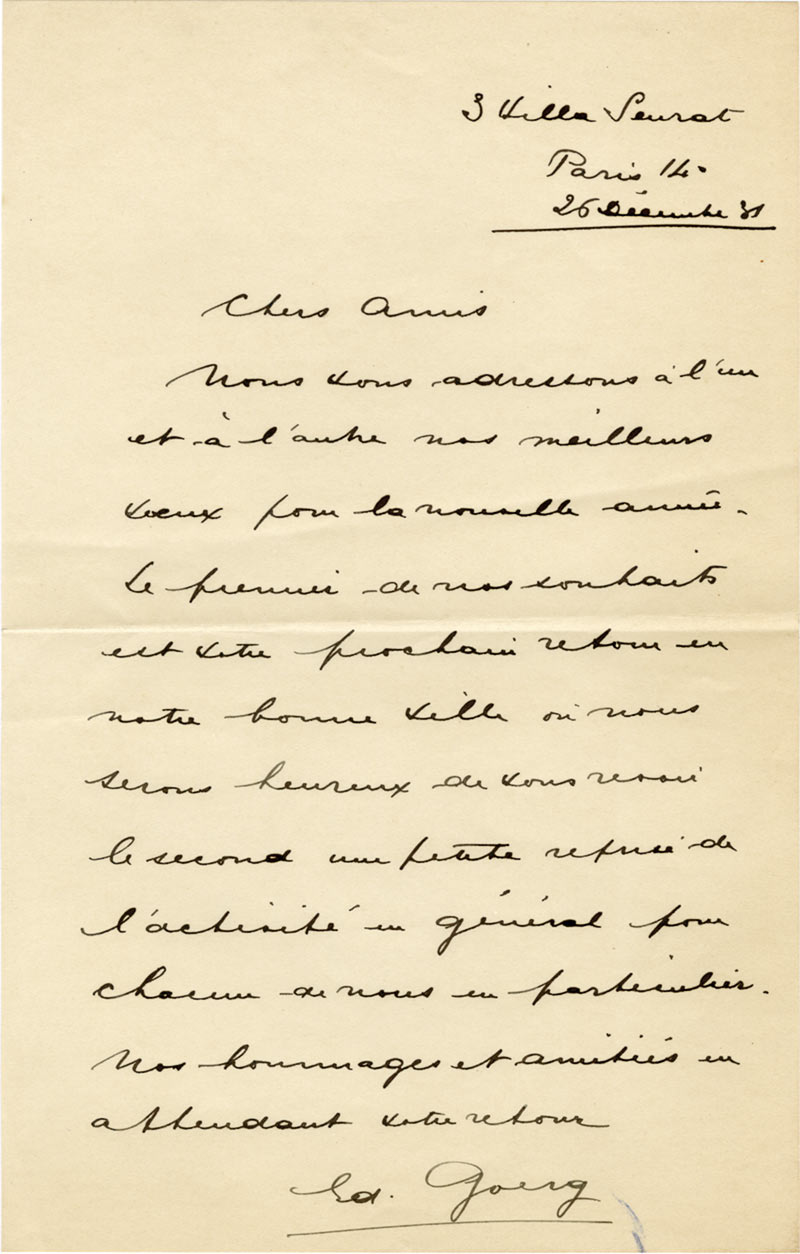 3 Villa Seurat
Paris 14e
26 Décembre 31
Chers Amis
Nous vous adressons à l'un
et à l'autre nos meilleurs
vœux pour la nouvelle année.
Le premier de nos souhaits
est votre prochain retour en
notre bonne ville où nous
serons heureux de vous revoir
le second une petite reprise de
l'activité en général pour
chacun de nous en particulier.
Nos hommages et amitiés en
attendant votre retour
Ed. Goerg